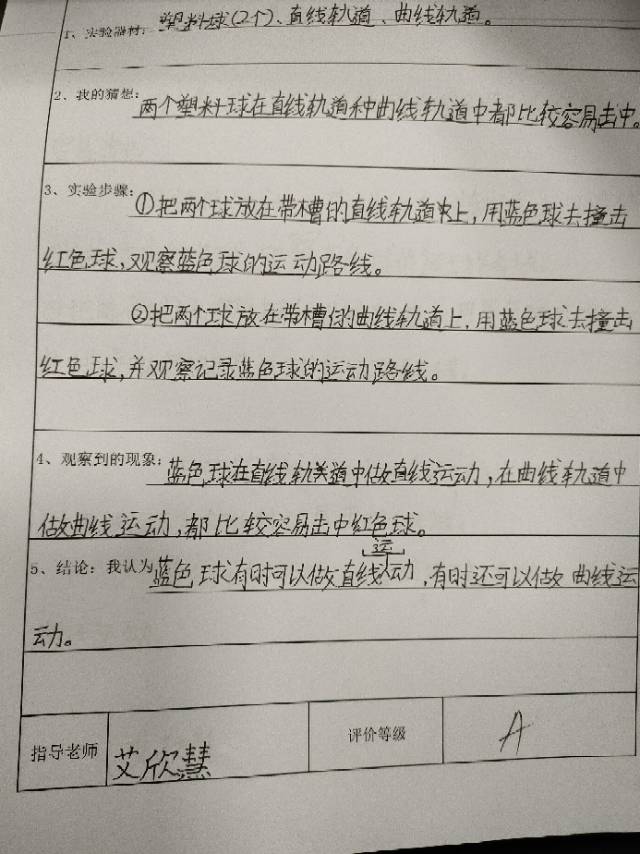 1、实验器材：塑料球(2个)、直线轨道、曲线轨道。
2、我的猜想：两个塑料球在直线轨道和曲线轨道中都比较容易击中。
3、实验步骤：①把两个球放在带槽的直线轨道上，用蓝色球去撞击
红色球，观察蓝色球的运动路线。
②把两个球放在带槽的曲线轨道上，用蓝色球去撞击
红色球，并观察记录蓝色球的运动路线。
4、观察到的现象：蓝色球在直线轨道中做直线运动，在曲线轨道中
做曲线运动，都比较容易击中红色球。
5、结论：我认为蓝色球有时可以做直线运动，有时还可以做曲线运
动。
指导老师 艾欣慧 评价等级 A